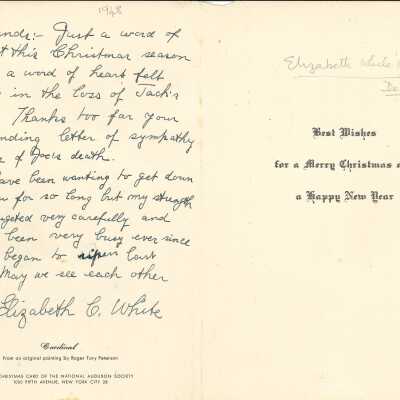 1948
nds:- Just a word of
t this Christmas season
a word of heart felt
in the loss of Jack's
Thanks too for your
nding letter of sympathy
e of Joe's death.
ave been wanting to get down
for so long but my strength
geted very carefully and
been very busy ever since
began to ripen last
May we see each other
Elizabeth C. White
Cardinal
From an original painting by Roger Tory Peterson
CHRISTMAS CARD OF THE NATIONAL AUDUBON SOCIETY
1000 FIFTH AVENUE, NEW YORK CITY 28
Elizabeth White's
De
Best Wishes
for a Merry Christmas a
a Happy New Year